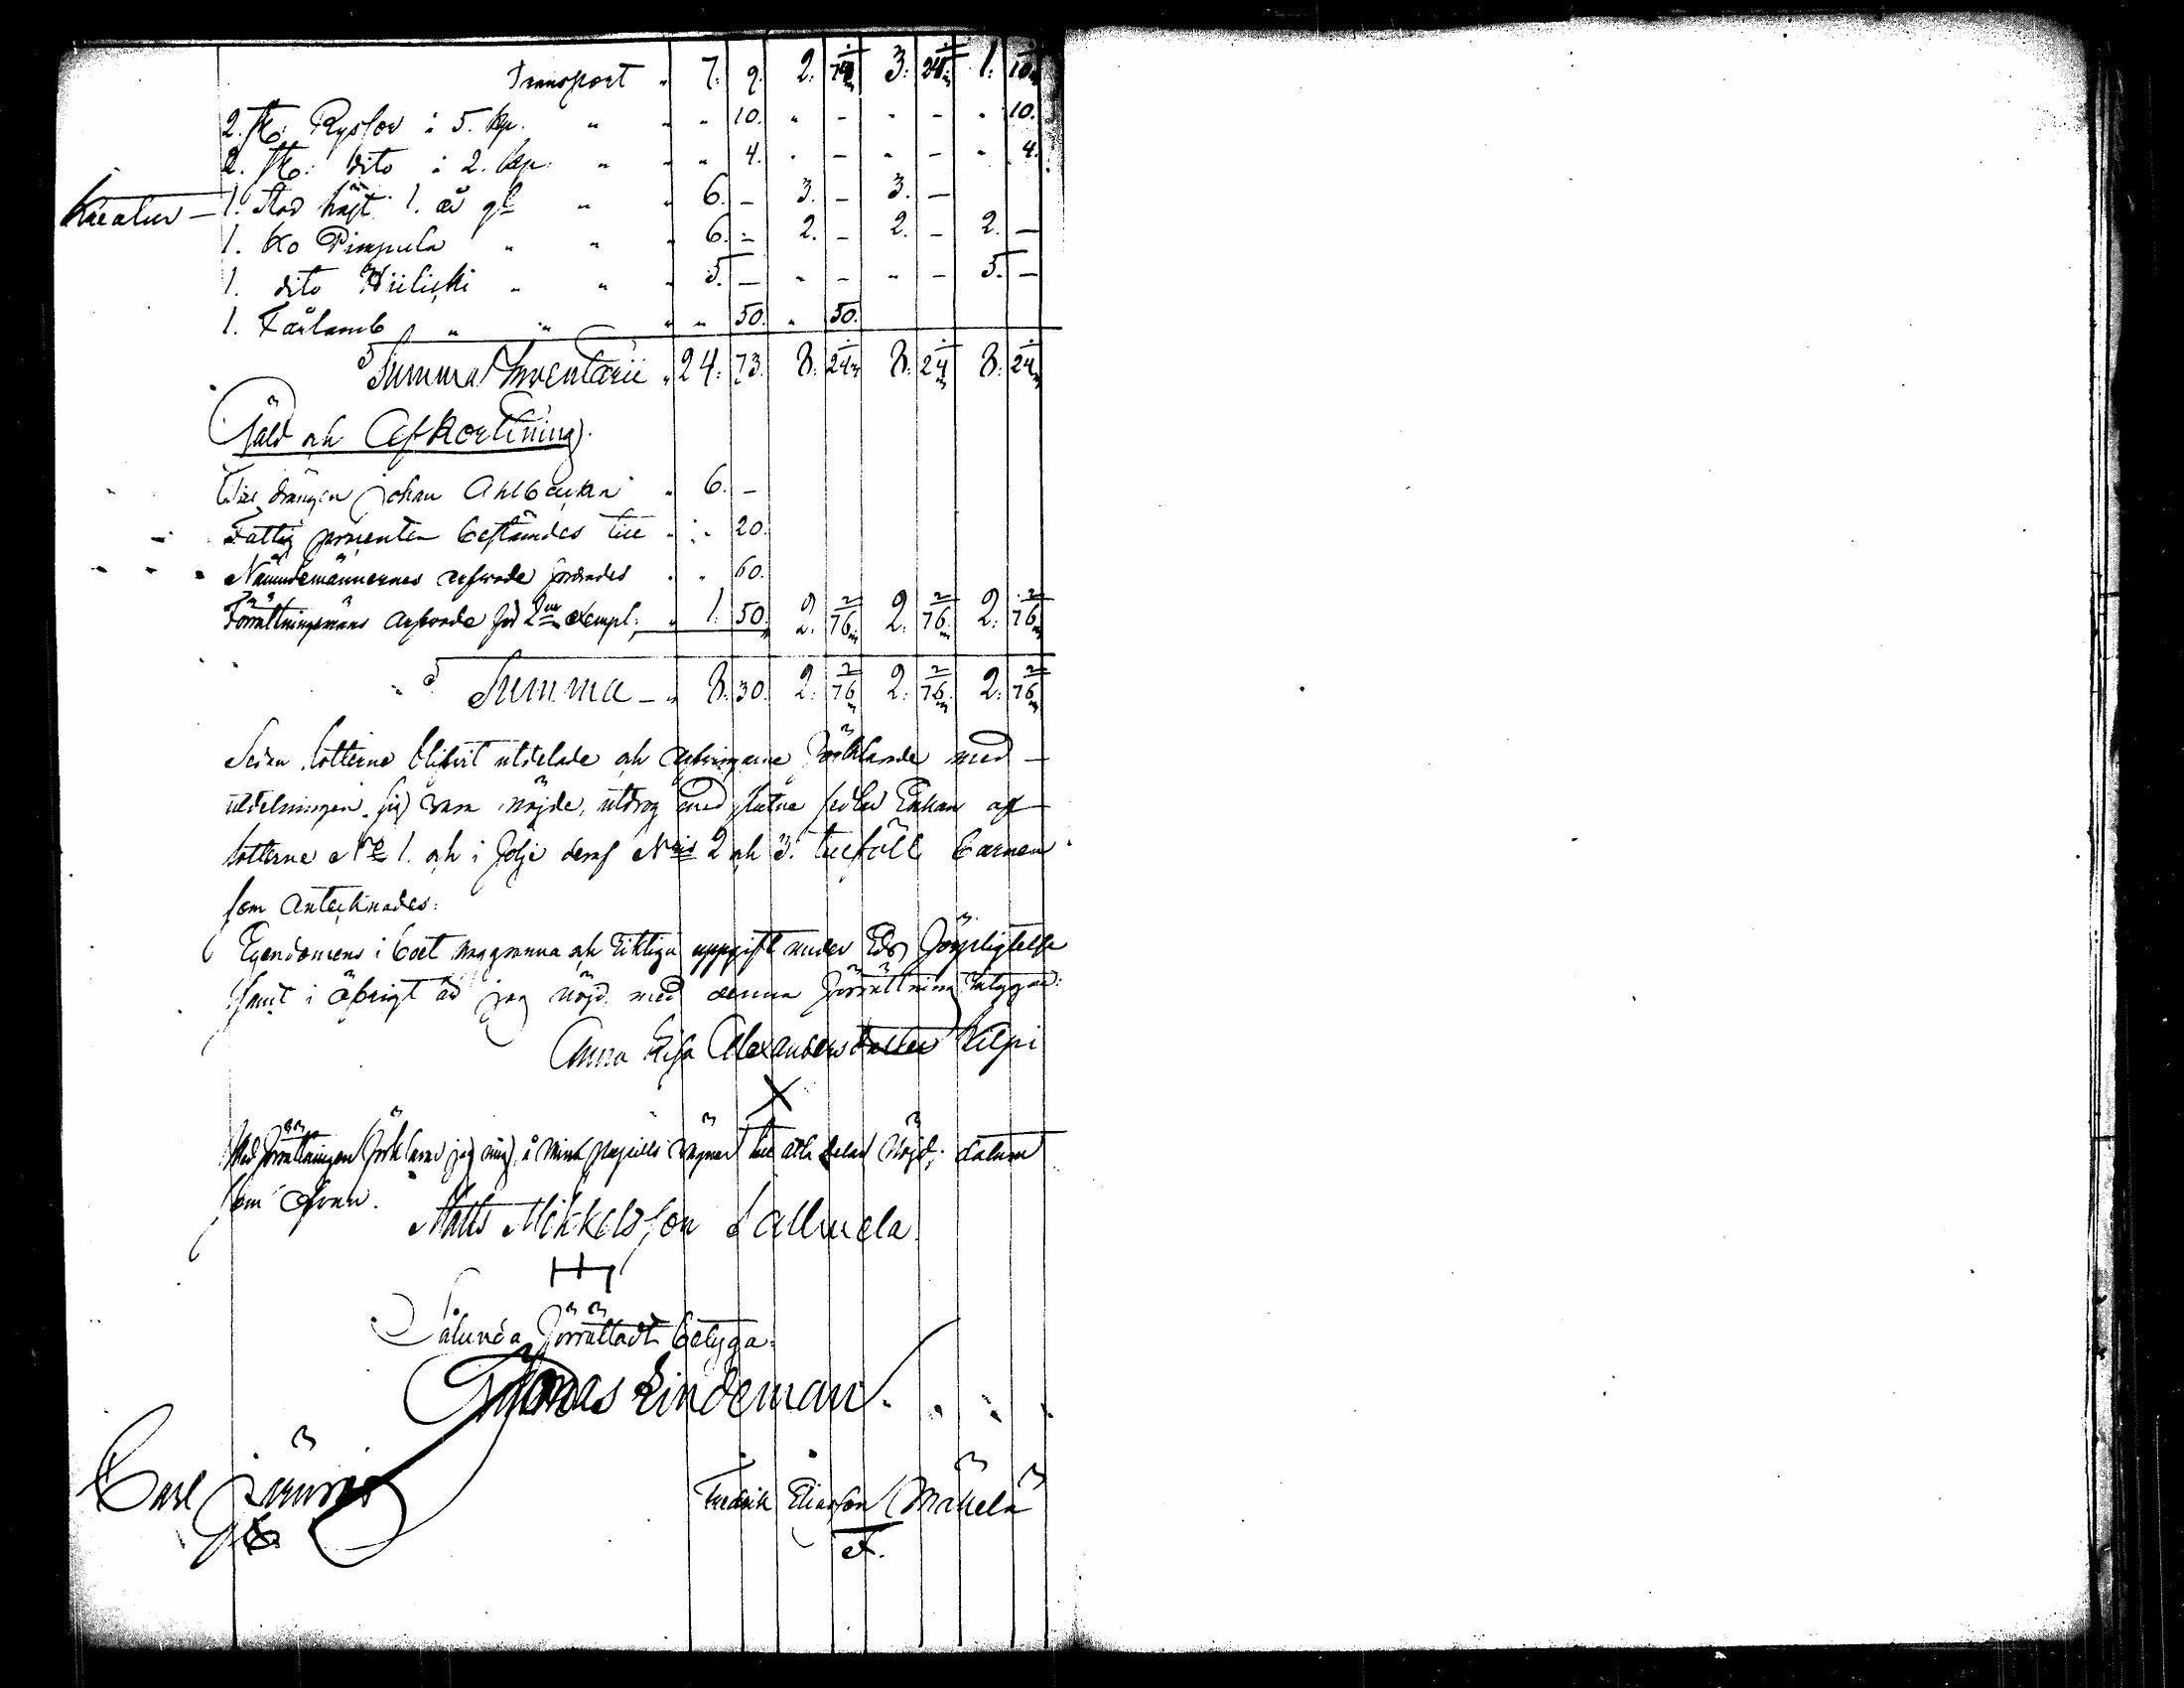 Transport " 7. 9. 2. 74 1/3. 24 1/1. 10
2. st: Ryslor à 5. kp. " " " 10. " - " - " 10.
2. st: dito à 2. kp. " " " 4. " - " - " 4.
Kreatur — 1. Stod häst 1. år gl " " 6. - 3. - 3. —
1. Ko Pimpula " " " 6. - 2. - 2. - 2. —
1. dito " " " 5. — " - " - 5. —
1. Fårlamb " " " " 50. " 50.
Summa Inventarii " 24. 73. 8. 24 8. 24 8. 24
Gäld och Afkortning.
Till drängen Johan Ahlbacka " 6. -
Fattig procenten bestämdes till " " 20.
Nämndemännernes arfvode " " 60.
Förrättningsmans arfvode för 2ne exempl: " 1. 50. 2. 76 2. 76 2. 76
Summa — " 8. 30. 2. 76 2. 76 2. 76
Sedan lotterne blifvit utdelade och arfvingarne förklarade med
utdelningen sig vara nöjde, utdrog med Enkan af
lotterne No 1. och i följe deraf Nris 2 och 3. tillföll Barnen
som antecknades:
Egendomens i boet noggranna och riktiga uppgift under Eds förpligtelse
samt i öfrigt är jag nöjd med denna förrättning betygar:
Anna Lisa Alexandersdotter Kilpi
X
Med förrättningen förklarar jag mig, å mina pupillers vägnar till alla delar nöjd; datum
som ofvan.
Matts Mikkelsson Sallmela
Sålunda förrättadt betyga:
Thomas Lindeman.
Carl
Fredrik Eliasson Mäkelä